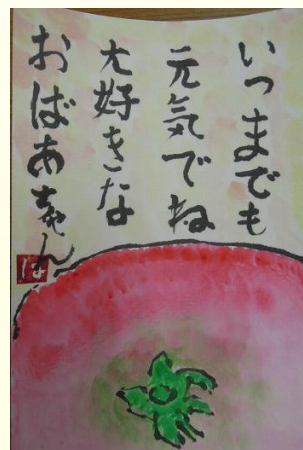 いつまでも
元気でね
大好きな
おばあちゃん
は